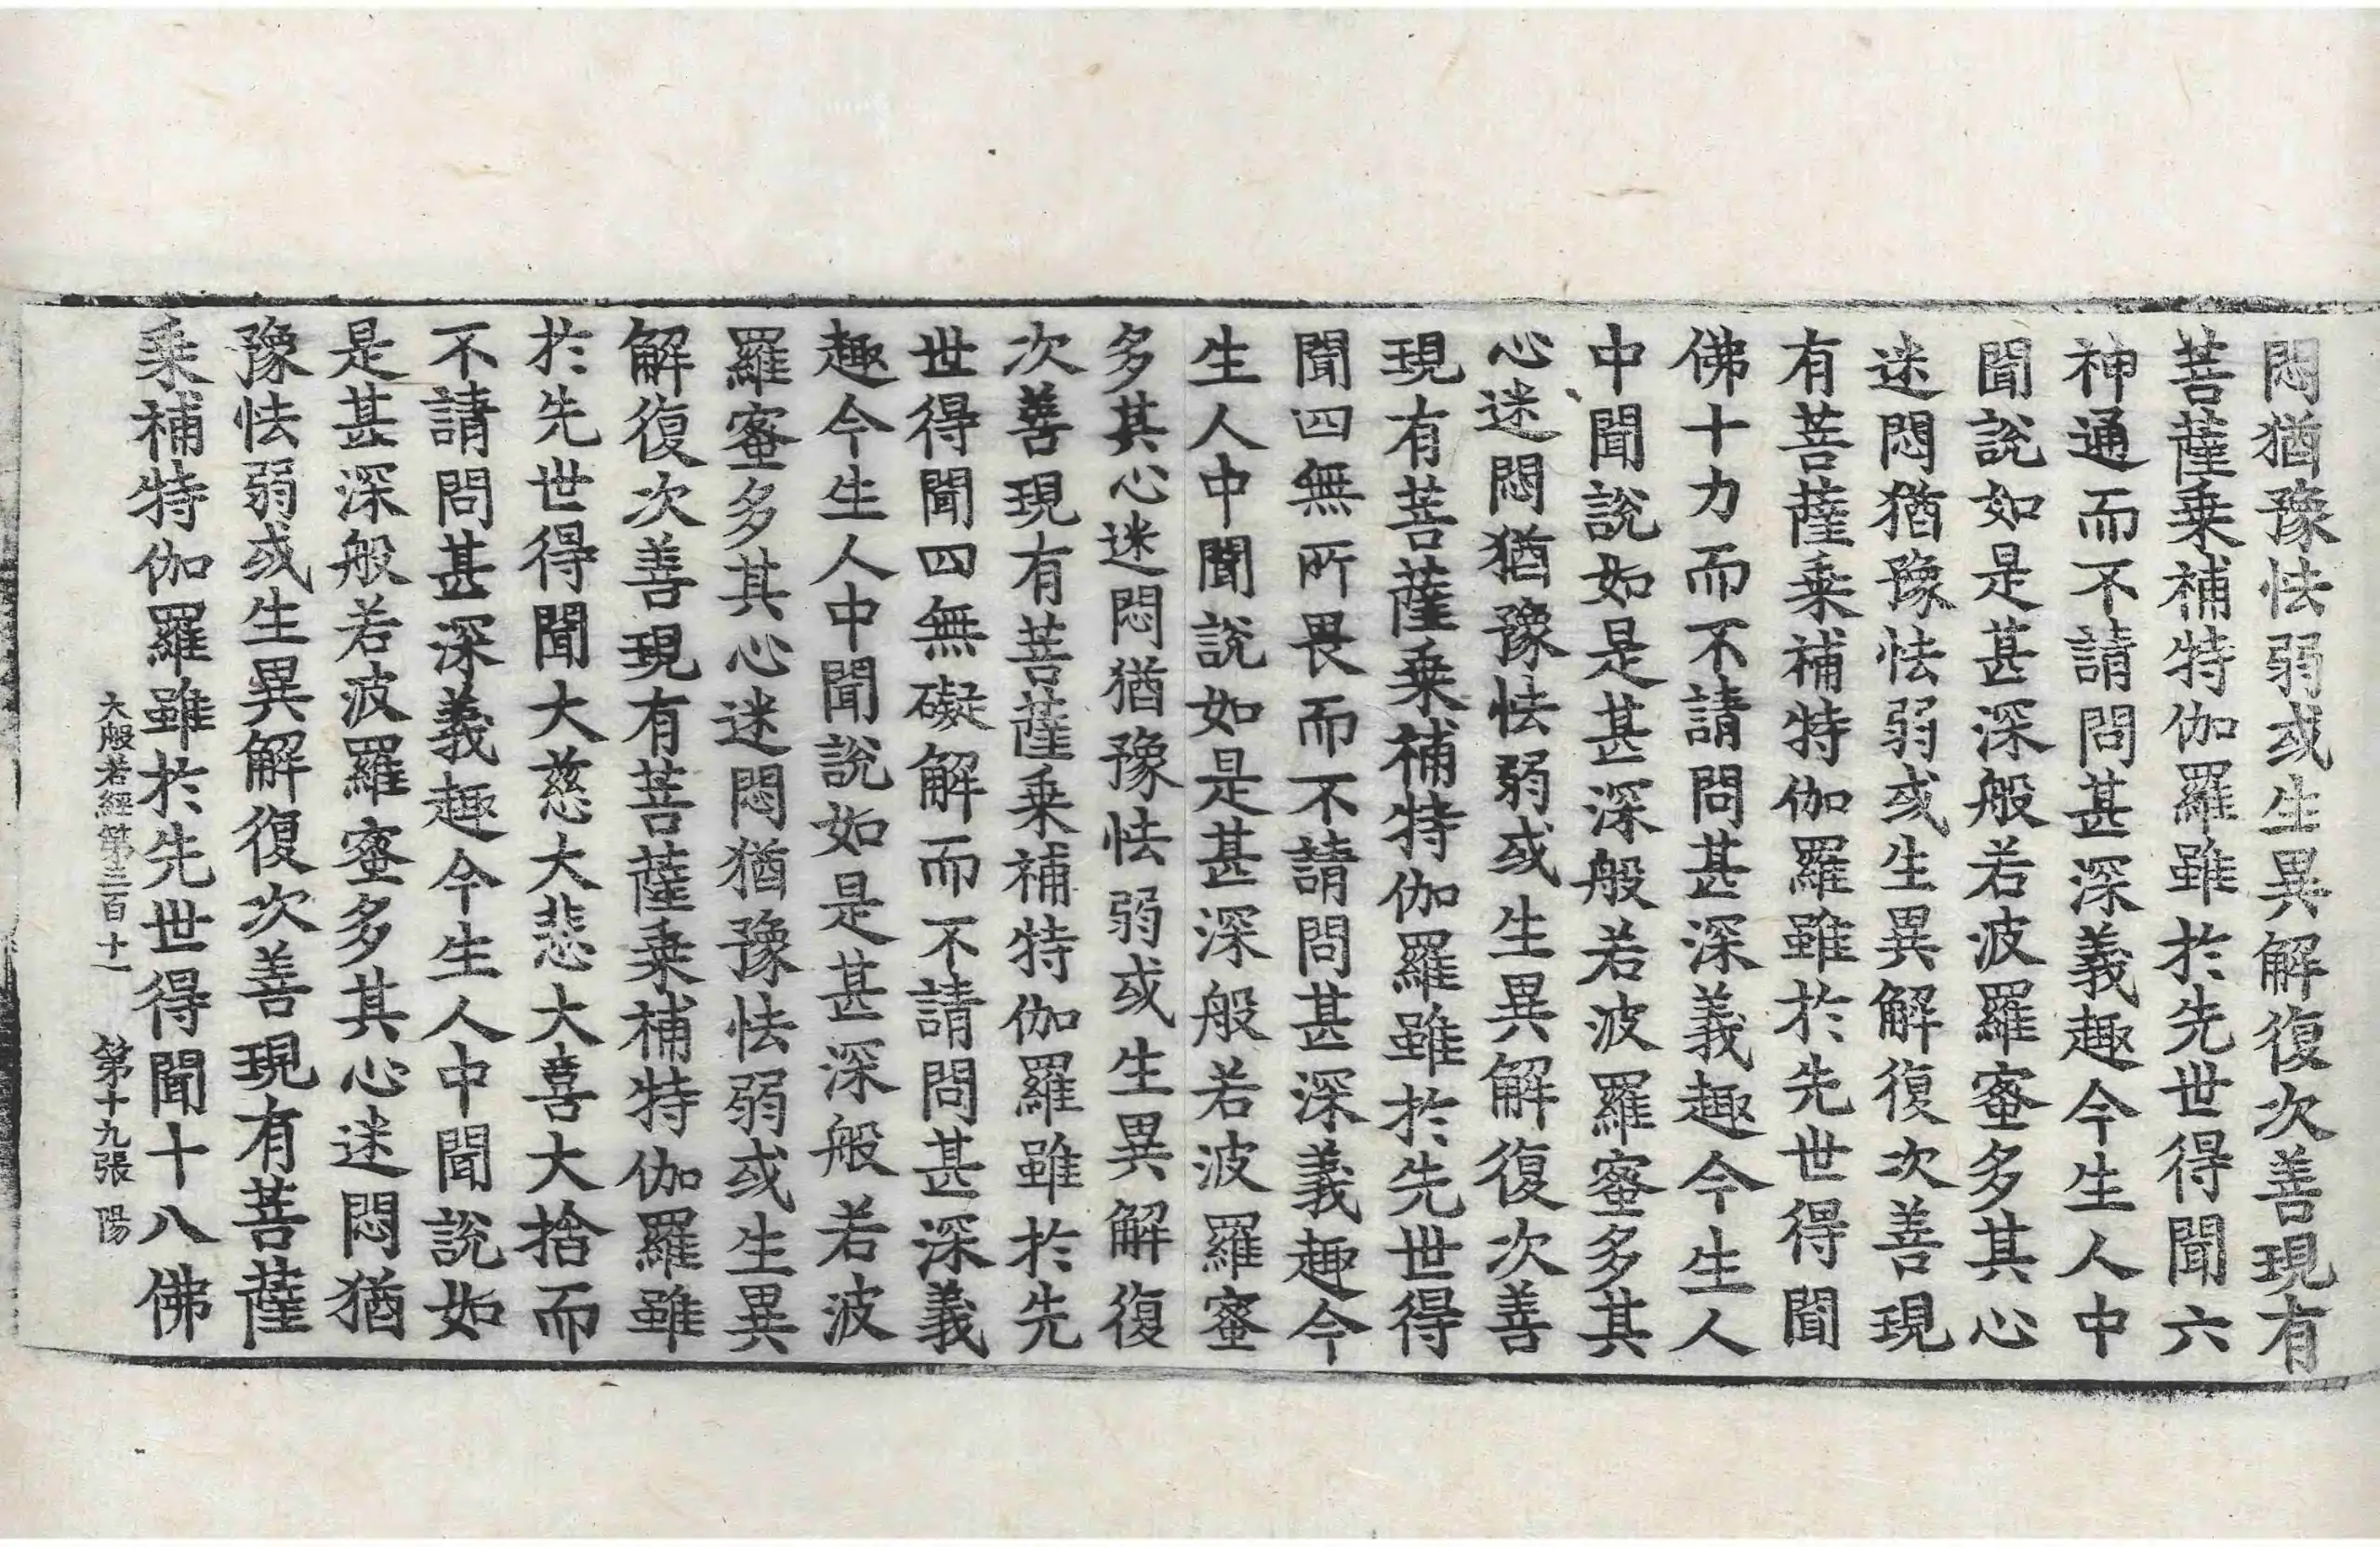 悶猶豫怯弱或生異解復次善現有
菩薩乗補特伽羅雖於先世得聞六
神通而不請問甚深義趣今生人中
聞說如是甚深般若波羅蜜多其心
迷悶猶豫怯弱或生異解復次善現
有菩薩乗補特伽羅雖於先世得聞
佛十力而不請問甚深義趣今生人
中聞說如是甚深般若波羅蜜多其
心迷悶猶豫怯弱或生異解復次善
現有菩薩乗補特伽羅雖於先世得
聞四無所畏而不請問甚深義趣今
生人中聞說如是甚深般若波羅蜜
多其心迷悶猶豫怯弱或生異解復
次善現有菩薩乗補特伽羅雖於先
世得聞四無礙解而不請問甚深義
趣今生人中聞說如是甚深般若波
羅蜜多其心迷悶猶豫怯弱或生異
解復次善現有菩薩乗補特伽羅雖
於先世得聞大慈大悲大喜大捨而
不請問甚深義趣今生人中聞說如
是甚深般若波羅蜜多其心迷悶猶
豫怯弱或生異解復次善現有菩薩
乗補特伽羅雖於先世得聞十八佛
大般若經第三百十一 第十九張 陽